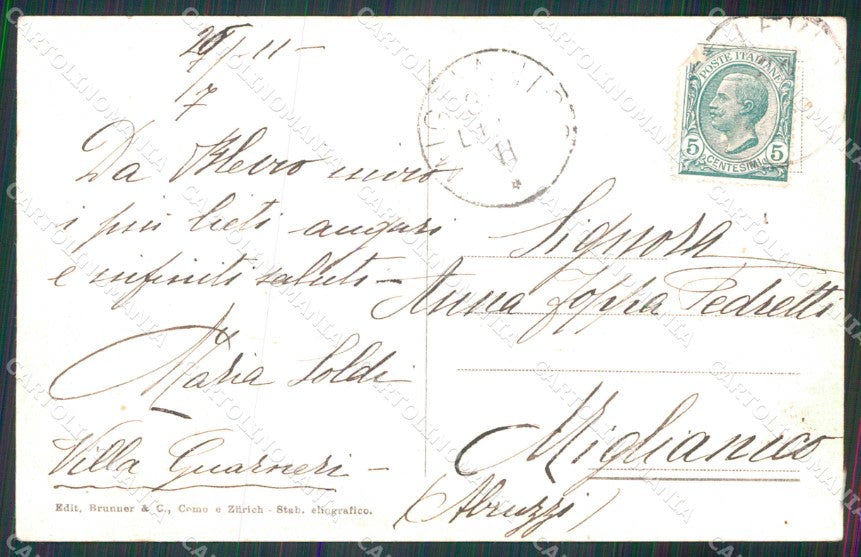 26/7-11-
7
Da Blevio invio
i più lieti auguri
e infiniti saluti-
Maria Soldi
Villa Guarneri -
Edit. Brunner & C., Como e Zürich - Stab. eliografico.
POSTE ITALIANE
5 5
CENTESIMI
Signora
Anna Zoppa Pedretti
Miglianico
(Abruzzi)
CARTOLINOMANIA